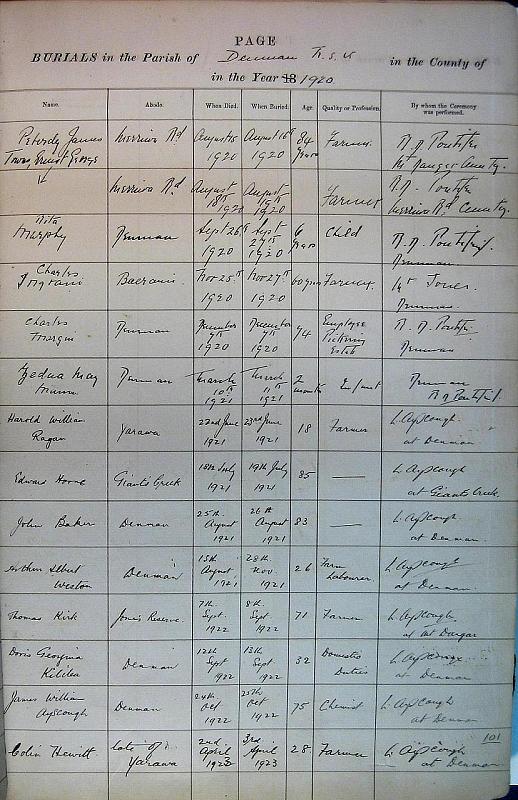 PAGE
BURIALS in the Parish of Denman N.S.W in the County of
in the Year 18 1920
Name. Abode. When Died. When Buried. Age. Quality or Profession. By whom the Ceremony was performed.
James Merriwa Rd August 16th 84 Farmer
1920 1920 years
Merriwa Rd August August Farmer
18th 19th Merriwa Rd
1920 1920
Murphy Denman Sept 26th Sept 6 Child
1920 27th years
1920 Denman
Charles Baerami Nov 25th Nov 27th 60 yrs Farmer. Jones.
Ingram 1920 1920 Denman
Charles Denman December December 74 Employee
7th
1920 1920 Denman
May Denman March March 2 Infant Denman
10th 11th months
1921 1921
Harold William Yarawa 22nd June 23rd June 18 Farmer L. Ayscough.
Ragan 1921 1921 at Denman
Edward Horne Giants Creek 18th July 19th July 85 — L. Ayscough
1921 1921 at Giants Creek.
John Baker Denman 25th 26th 83 — L. Ayscough.
August August at Denman.
1921 1921
Arthur Albert Denman 28th 26 Farm L. Ayscough
Weston August Nov. Labourer. at Denman.
1921 1921
Thomas Kirk Jones Reserve. 7th 8th 71 Farmer L. Ayscough.
Sept. Sept.
1922 1922
Doris Georgina Denman 12th 13th 32 Domestic L. Ayscough
Sept Sept Duties at Denman
1922 1922
James William Denman 24th 25th 75 Chemist L. Ayscough
Ayscough Oct Oct at Denman
1922 1922
101
Colin Hewitt late of 2nd 3rd 28 Farmer L. Ayscough
Yarawa April April at Denman
1923 1923